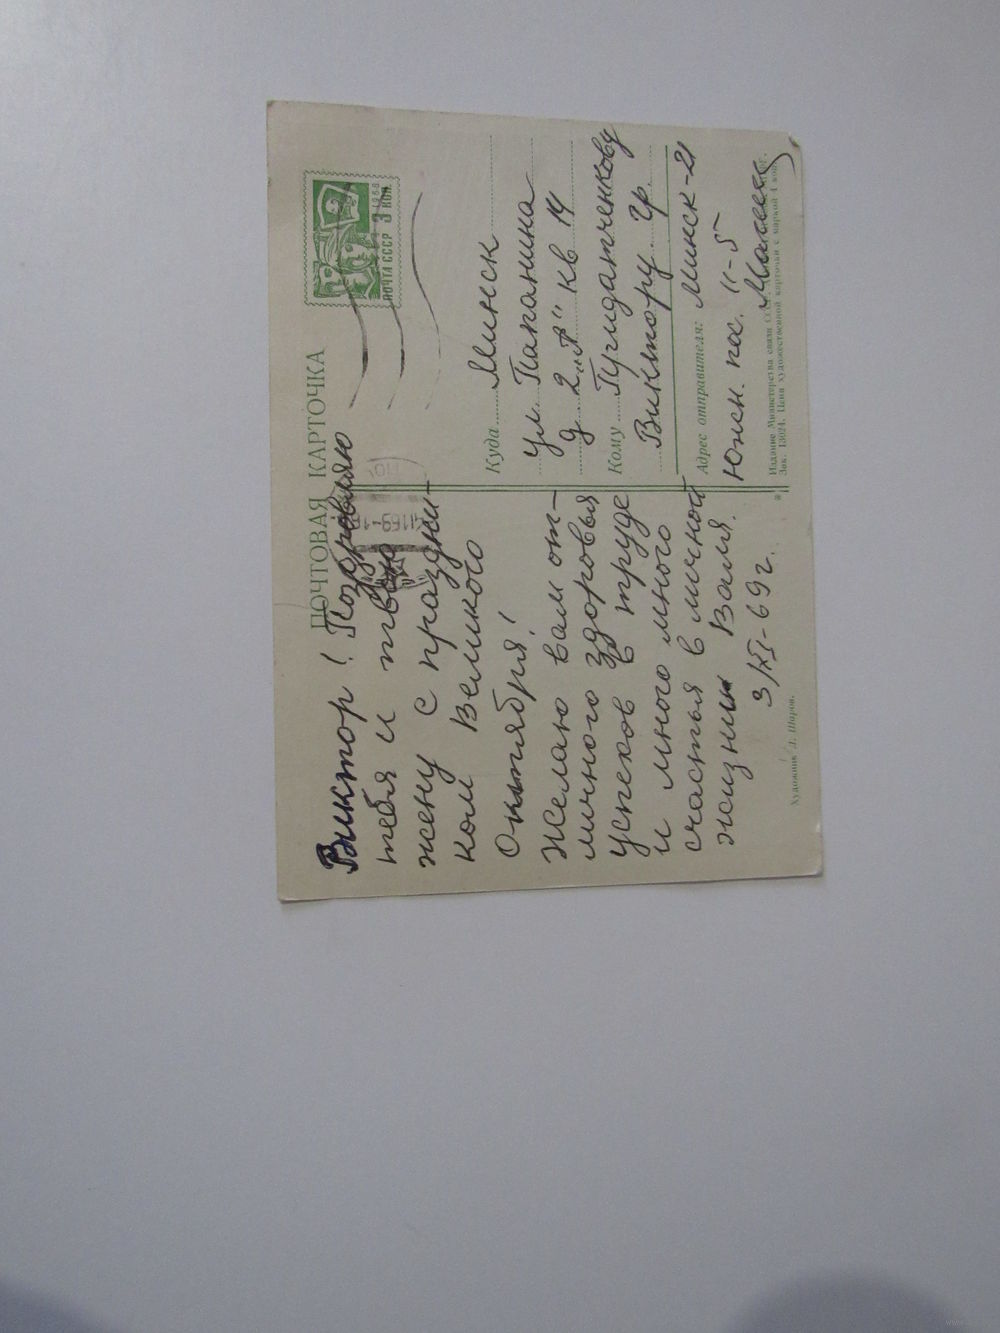 ПОЧТОВАЯ КАРТОЧКА
Виктор! Поздравляю
тебя и твою
жену с праздни-
ком Великого
Октября!
Желаю вам от-
личного здоровья
успехов в труде
и много много
счастья в личной
жизни Валя.
3/XI-69г.
Художник Л. Шаров.
1968
ПОЧТА СССР 3 КОП
Куда Минск
ул. Папанина
д. 2 „А" кв 14
Кому
Виктору Гр.
Адрес отправителя: Минск-21
Южн. пос. 11-5
Издание Министерства связи СССР
Зак. 13024. Цена художественной карточки с маркой 4 коп.